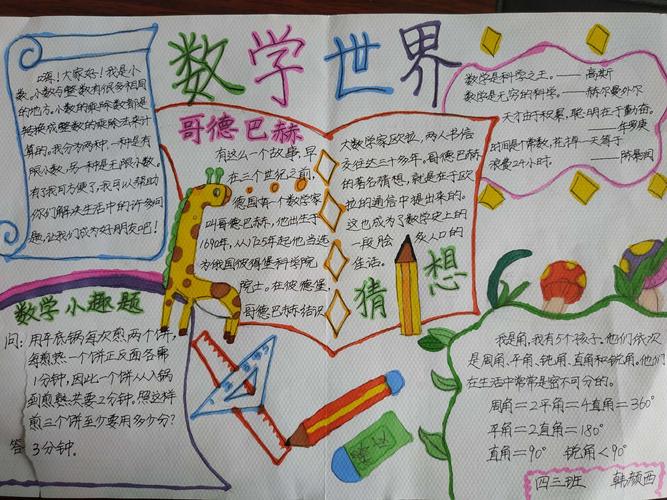 数学世界
嗨！大家好！我是小
数。小数与整数有很多相同
的地方。小数的乘除数都是
转换成整数的乘除法来计
算的。我分为两种，一种是有
限小数，另一种是无限小数。
有了我可方便了，我可以帮助
你们解决生活中的许多问
题，让我们成为好朋友吧！
哥德巴赫
有这么一个故事，早
在三个世纪之前，
德国有一个数学家
叫哥德巴赫，他出生于
1690年，从1725年起他当选
为俄国彼得堡科学院
院士。在彼德堡，
哥德巴赫结识
大数学家欧拉，两人书信
交往达三十多年。哥德巴赫
的著名猜想，就是在于欧
拉的通信中提出来的。
这也成为了数学史上的
一段脍炙人口的
佳话。
猜想
数学是科学之王。——高斯
数学是无穷的科学。——赫尔曼外尔
天才由于积累，聪明在于勤奋。
——华罗庚
时间是个常数，花掉一天等于
浪费24小时。——陈景润
数学小趣题
问：用平底锅每次煎两个饼，
每煎熟一个饼正反面各需
1分钟，因此一个饼从入锅
到煎熟共要2分钟。照这样
煎三个饼至少要用多少分？
答 3分钟。
我是角，我有5个孩子。他们依次
是周角、平角、钝角、直角和锐角。他们
在生活中常常是密不可分的。
周角=2平角=4直角=360°
平角=2直角=180°
直角=90° 锐角<90°
四三班 韩颜西